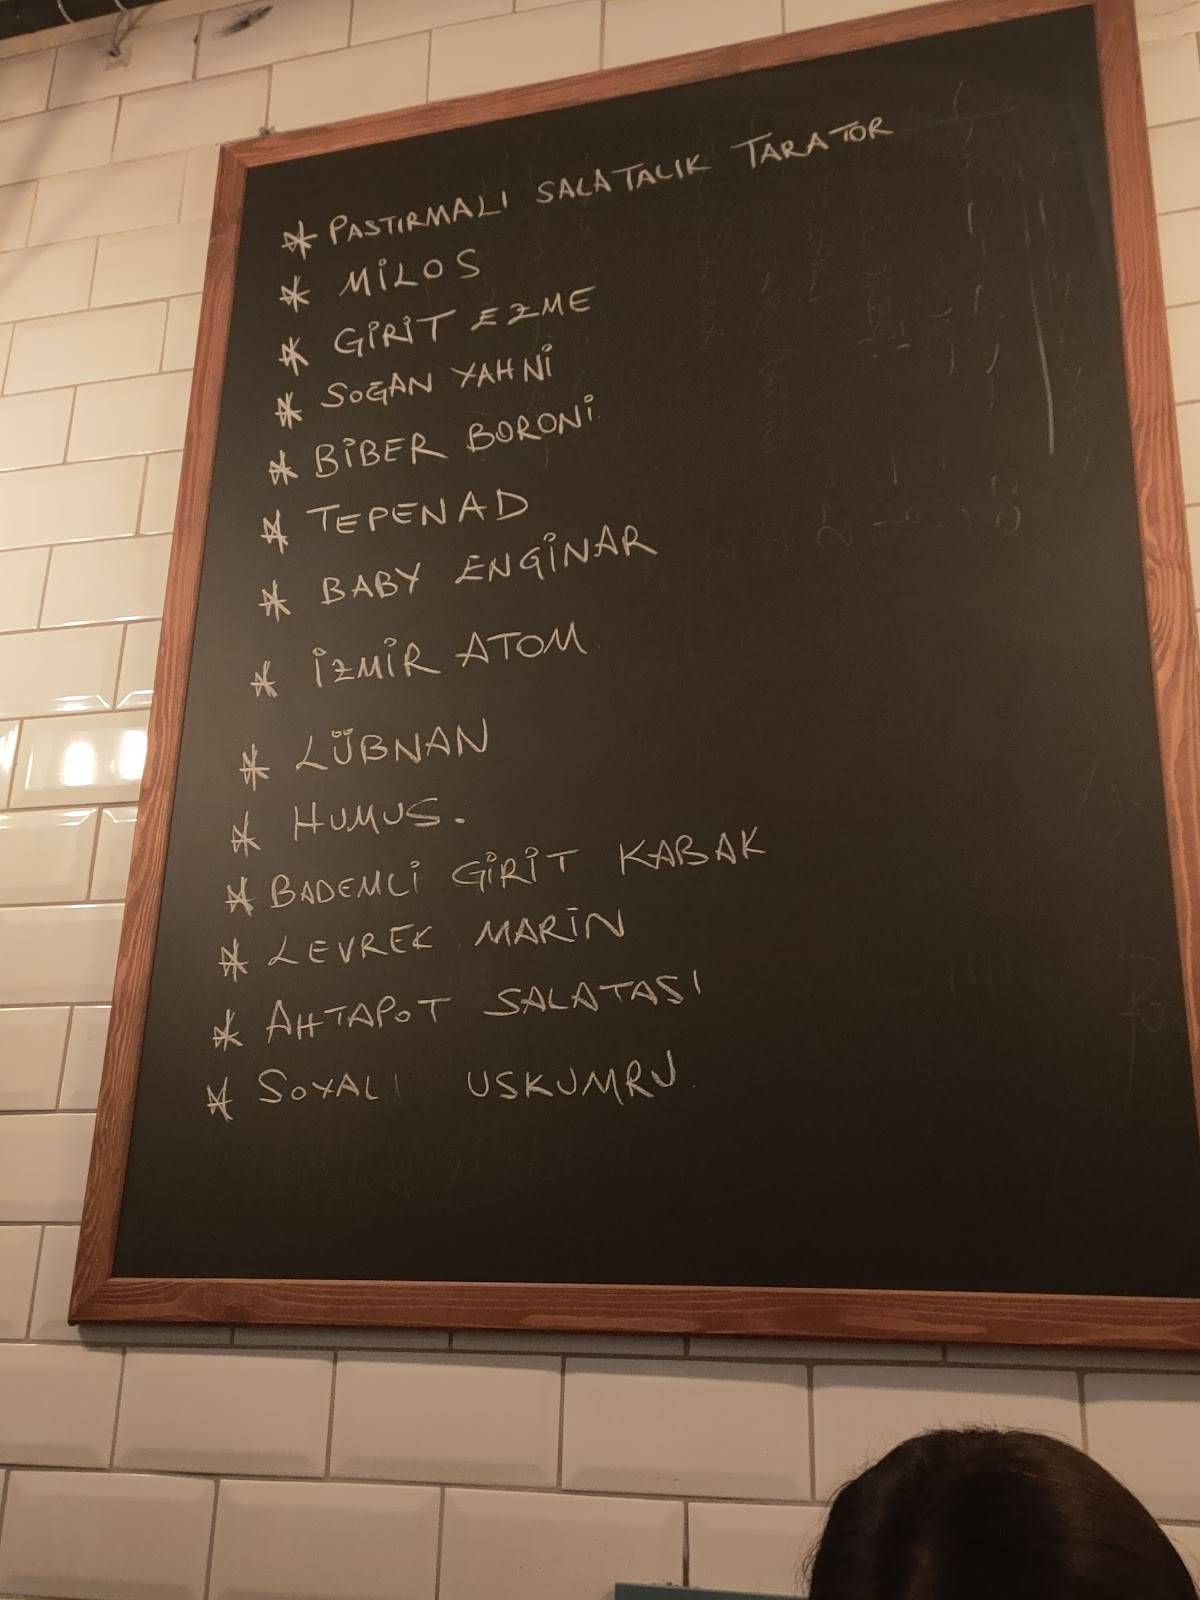 * PASTIRMALI SALATALIK TARATOR
* MİLOS
* GİRİT EZME
* SOĞAN YAHNİ
* BİBER BORONİ
* TEPENAD
* BABY ENGİNAR
* İZMİR ATOM
* LÜBNAN
* HUMUS.
* BADEMLİ GİRİT KABAK
* LEVREK MARİN
* AHTAPOT SALATASI
* SOYALI USKUMRU